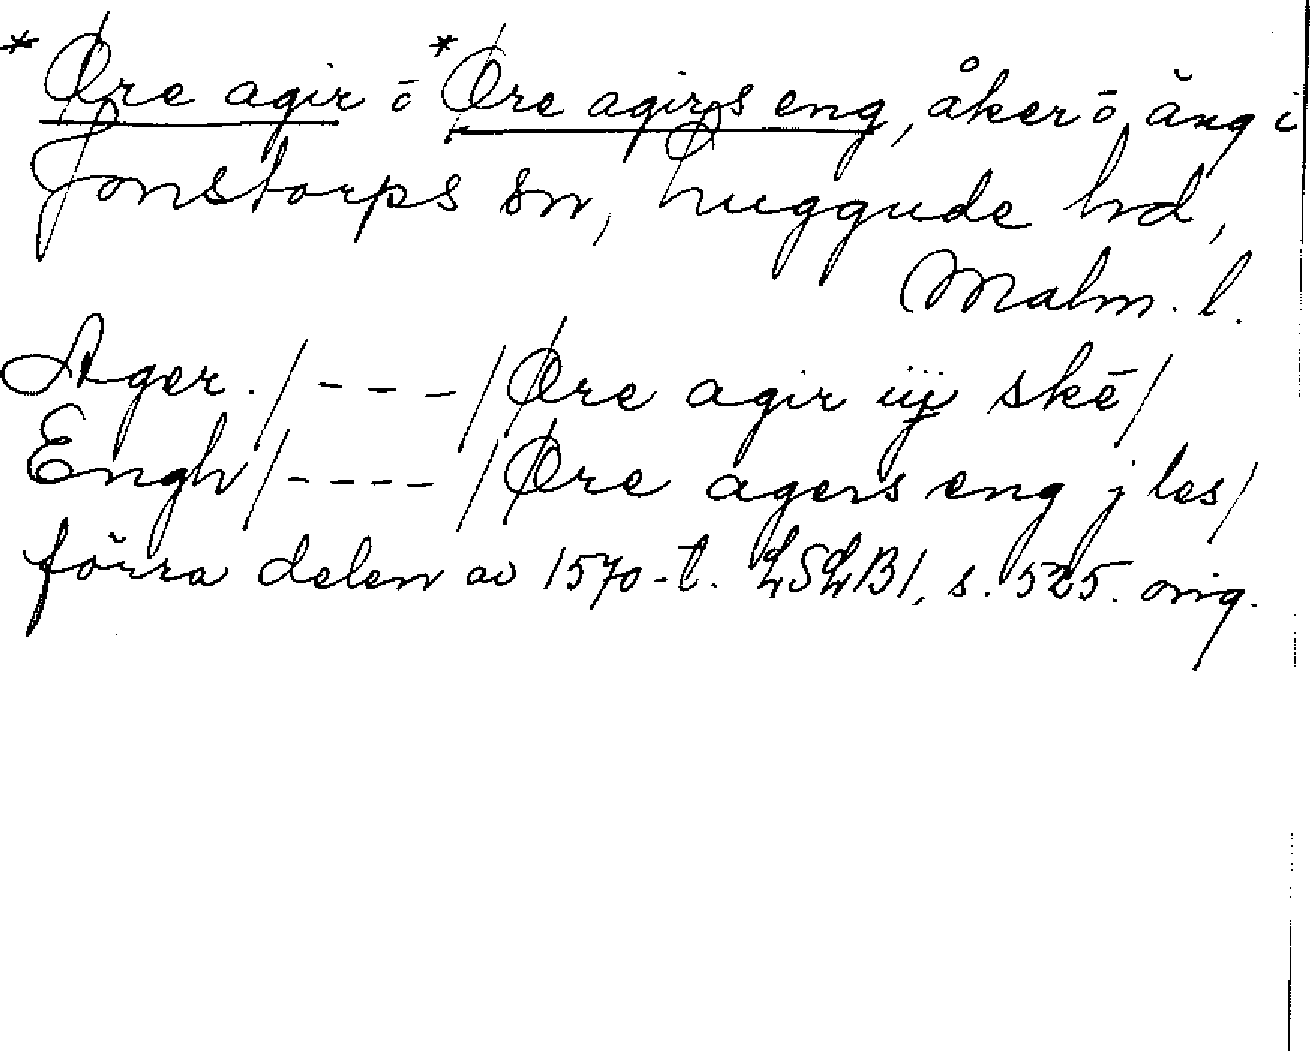 *Øre agir ō *Øre agirs eng, åker ō äng i
Jonstorps sn, Luggude hd,
Malm. l.
Ager. / - - - / Øre agir iij skē /
Engh / - - - - / Øre agers eng j les /
förra delen av 1570-t. LSLB1, s. 525. orig.